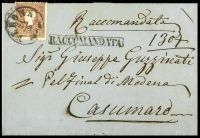 Raccomandata
1307
RACCOMANDATA
Sigr Giuseppe Guzzinati
Pel Final di Modena
Casumaro